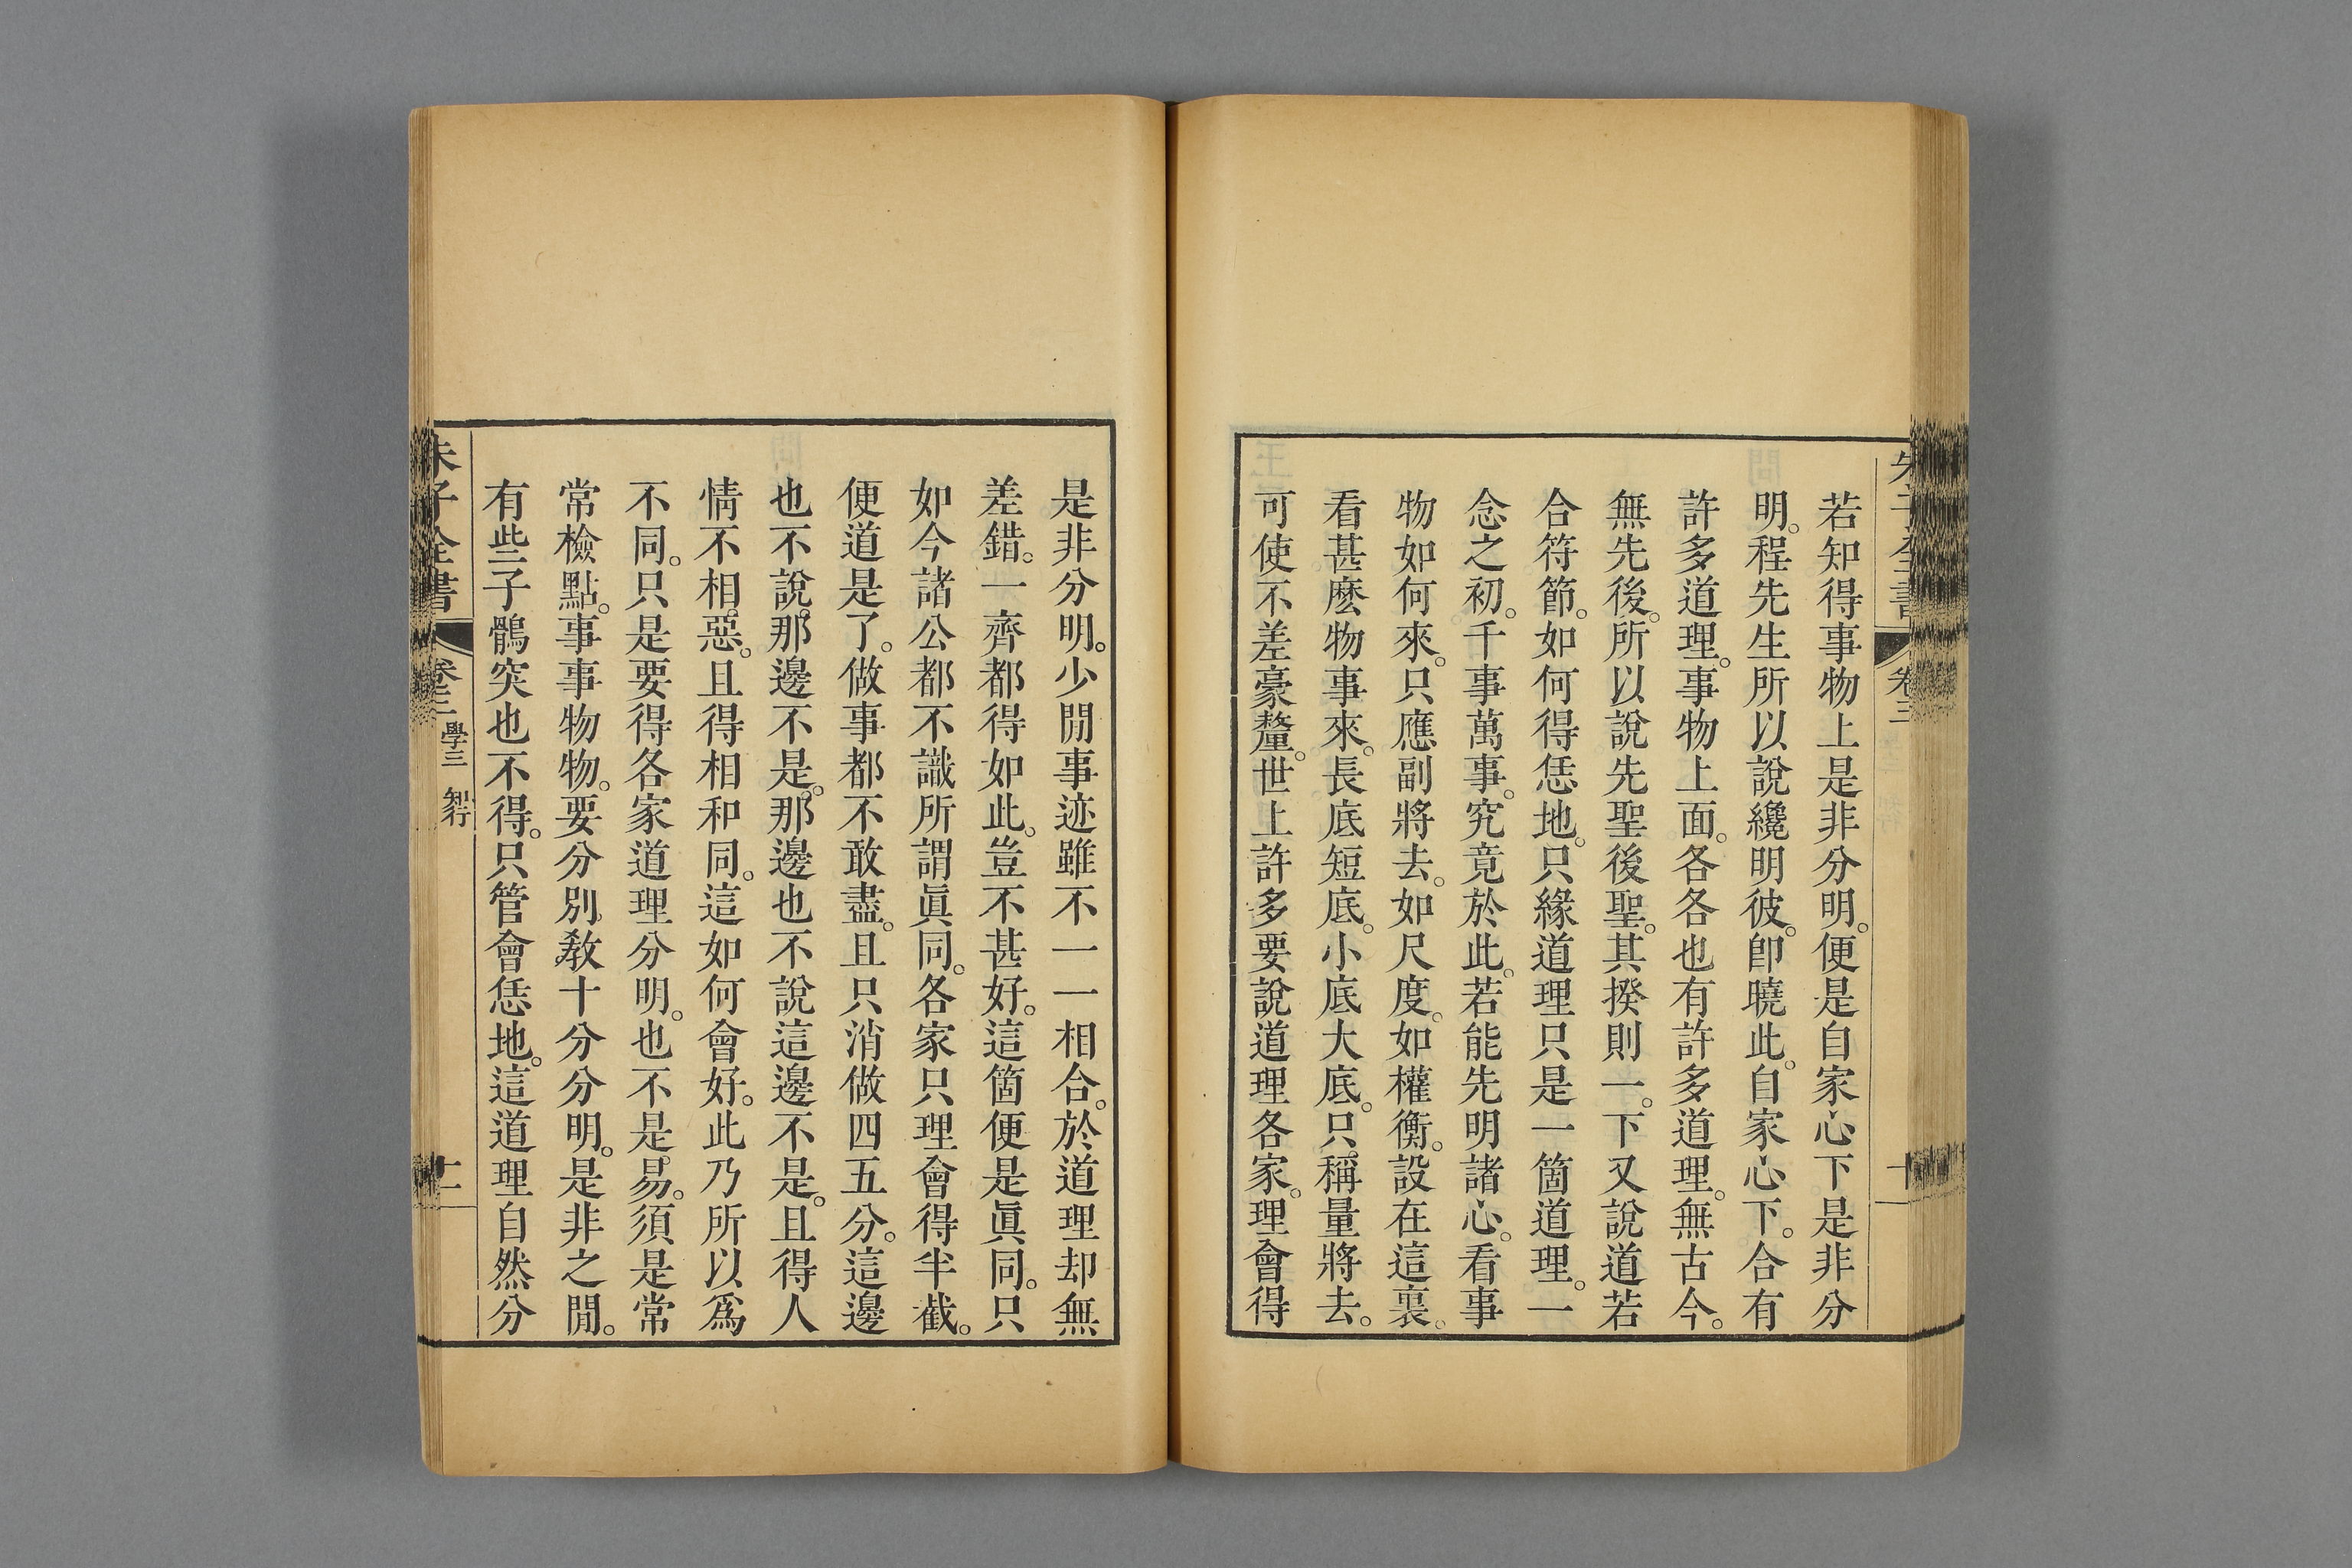 若知得事物上是非分明。便是自家心下是非分
明。程先生所以說纔明彼。即曉此。自家心下。合有
許多道理。事物上面。各各也有許多道理。無古今。
無先後。所以說先聖後聖。其揆則一。下又說道若
合符節。如何得恁地。只緣道理只是一箇道理。一
念之初。千事萬事。究竟於此。若能先明諸心。看事
物如何來。只應副將去。如尺度。如權衡。設在這裏。
看甚麽物事來。長底短底。小底大底。只稱量將去。
可使不差豪釐。世上許多要說道理各家。理會得
是非分明。少閒事迹雖不一一相合。於道理却無
差錯。一齊都得如此。豈不甚好。這箇便是眞同。只
如今諸公都不識所謂眞同。各家只理會得半截。
便道是了。做事都不敢盡。且只消做四五分。這邊
也不說那邊不是。那邊也不說這邊不是。且得人
情不相惡。且得相和同。這如何會好。此乃所以爲
不同。只是要得各家道理分明。也不是易。須是常
常檢點。事事物物。要分別敎十分分明。是非之閒。
有些子鶻突也不得。只管會恁地。這道理自然分
朱子全書 卷三 學三 知行 十一